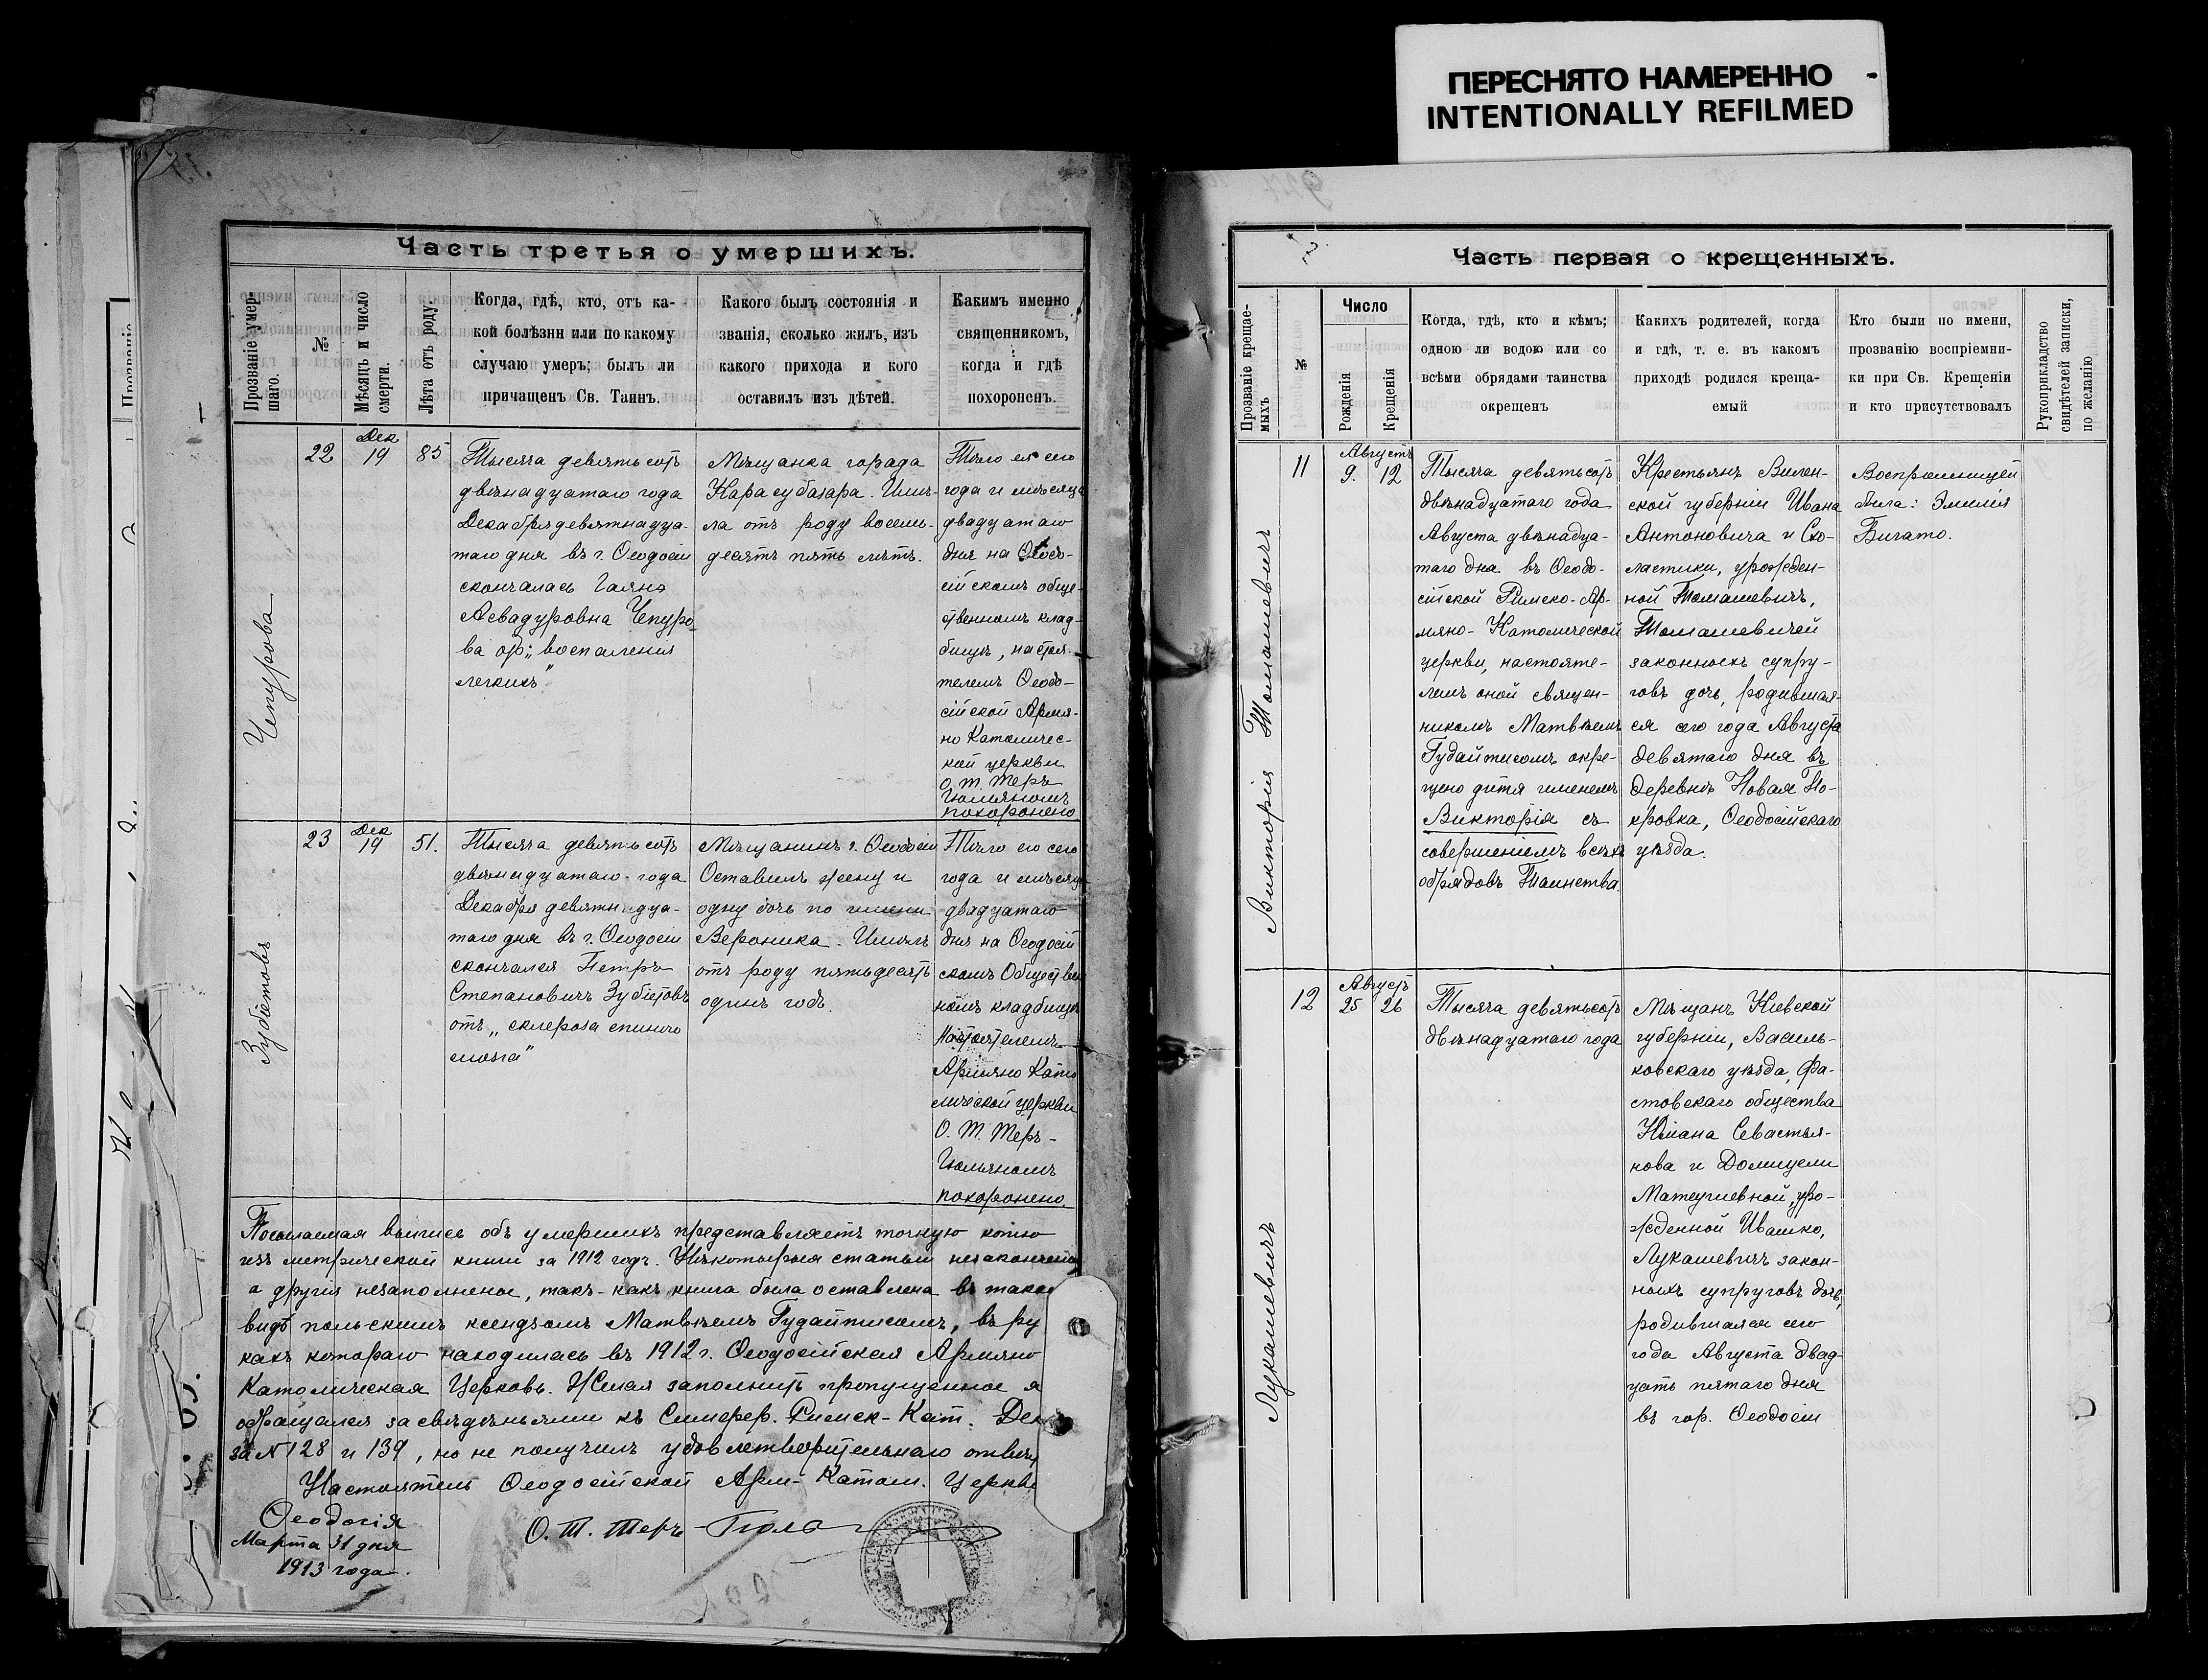 ПЕРЕСНЯТО НАМЕРЕННО
INTENTIONALLY REFILMED
Часть третья о умершихъ.
Прозваніе умер-
шаго.
№
Мѣсяцъ и число
смерти.
Лѣта отъ роду.
Когда, гдѣ, кто, отъ ка-
кой болѣзни или по какому
случаю умеръ; былъ ли
причащенъ Св. Таинъ.
Какого былъ состоянія и
званія, сколько жилъ, изъ
какого прихода и кого
оставилъ изъ дѣтей.
Каким именно
священникомъ,
когда и гдѣ
похороненъ.
Чепурова
22
Дек
19
85
Тысяча девятьсотъ
двѣнадцатаго года
Декабря девятнадца-
таго дня въ г. Ѳеодосіи
скончалась Гаянэ
Асвадуровна Чепуро-
ва от „воспаленія
легкихъ"
Мѣщанка города
Карасубазара. Имѣ-
ла отъ роду восемь-
десять пять лѣтъ.
Тѣло ея сего
года и мѣсяца
двадцатаго
дня на Ѳеодо-
сійскомъ обще-
ственномъ клад-
бищѣ, настоя-
телемъ Ѳеодо-
сійской Армя-
но Католичес-
кой церкви
О. Т. Теръ
Гюльяномъ
похоронено
Зубіетовъ
23
Дек
19
51.
Тысяча девятьсотъ
двѣнадцатаго года
Декабря девятнадца-
таго дня въ г. Ѳеодосіи
скончался Петръ
Степановичъ Зубіетовъ
отъ „склероза спинно
мозга"
Мѣщанинъ г. Ѳеодосіи
Оставилъ жену и
одну дочь по имени
Вероника. Имѣлъ
отъ роду пятьдесятъ
одинъ годъ.
Тѣло его сего
года и мѣсяца
двадцатаго
дня на Ѳеодосій
скомъ Обществен
номъ кладбищѣ
Настоятелемъ
Армяно Като
лической церкви
О. Т. Теръ-
Гюльяномъ
похоронено.
Посылаемая выпись объ умершихъ представляетъ точную копію
изъ метрической книги за 1912 годъ. Нѣкоторыя статьи незакончены
а другія незаполненые, такъ-какъ книга была оставлена въ тако
видѣ польскимъ ксендзомъ Матвѣемъ Гудайтисомъ, въ ру
кахъ котораго находилась въ 1912 г. Ѳеодосійская Армяно
Католическая Церковь. Желая заполнить пропущенное я
обращался за свѣдѣньями къ Симфер. Римск-Кат. Дек
за № 128 и 139, но не получилъ удовлетворительнаго отвѣт
Настоятель Ѳеодосійской Арм-Катол. Церкви
Ѳеодосія
Марта 31 дня
1913 года.
О. Т. Теръ-Гюль
Часть первая о крещенныхъ.
Прозваніе крещае-
мыхъ
№
Число
Рожденія
Крещенія
Когда, гдѣ, кто и кѣмъ;
одною ли водою или со
всѣми обрядами таинства
окрещенъ
Какихъ родителей, когда
и гдѣ, т. е. въ какомъ
приходѣ родился креща-
емый
Кто были по имени,
прозванію воспріемни-
ки при Св. Крещеніи
и кто присутствовалъ
Рукоприкладство
свидѣтелей записки,
по желанію
Викторія Томашевичъ
11
Августъ
9. 12
Тысяча девятьсотъ
двѣнадцатаго года
Августа двѣнадца-
таго дна въ Ѳеодо-
сійской Римско-Ар-
мяно-Католической
церкви, настояте-
лемъ оной священ-
никомъ Матвѣемъ
Гудайтисомъ окре-
щено дитя именемъ
Викторія съ
совершеніемъ всѣхъ
обрядовъ Таинства
Крестьянъ Вилен-
ской губерніи Ивана
Антоновича и Схо-
ластики, урожден-
ной Томашевичъ,
Томашевичей
законныхъ супру-
говъ дочь, родившая-
ся сего года Августа
девятаго дня въ
деревнѣ Новая По-
кровка, Ѳеодосійскаго
уѣзда.
Воспріемницей
была: Эмилія
Вигато.
Лукашевичъ
12
Августъ
25 26
Тысяча девятьсотъ
двѣнадцатаго года
Мѣщанъ Кіевской
губерніи, Василь-
ковскаго уѣзда, Фа-
стовскаго общества
Юліана Севастья-
нова и Домицели
Матеушевной, уро-
жденной Ивашко,
Лукашевичъ закон-
ныхъ супруговъ дочь,
родившаяся сего
года Августа двад-
цать пятаго дня
въ гор. Ѳеодосіи